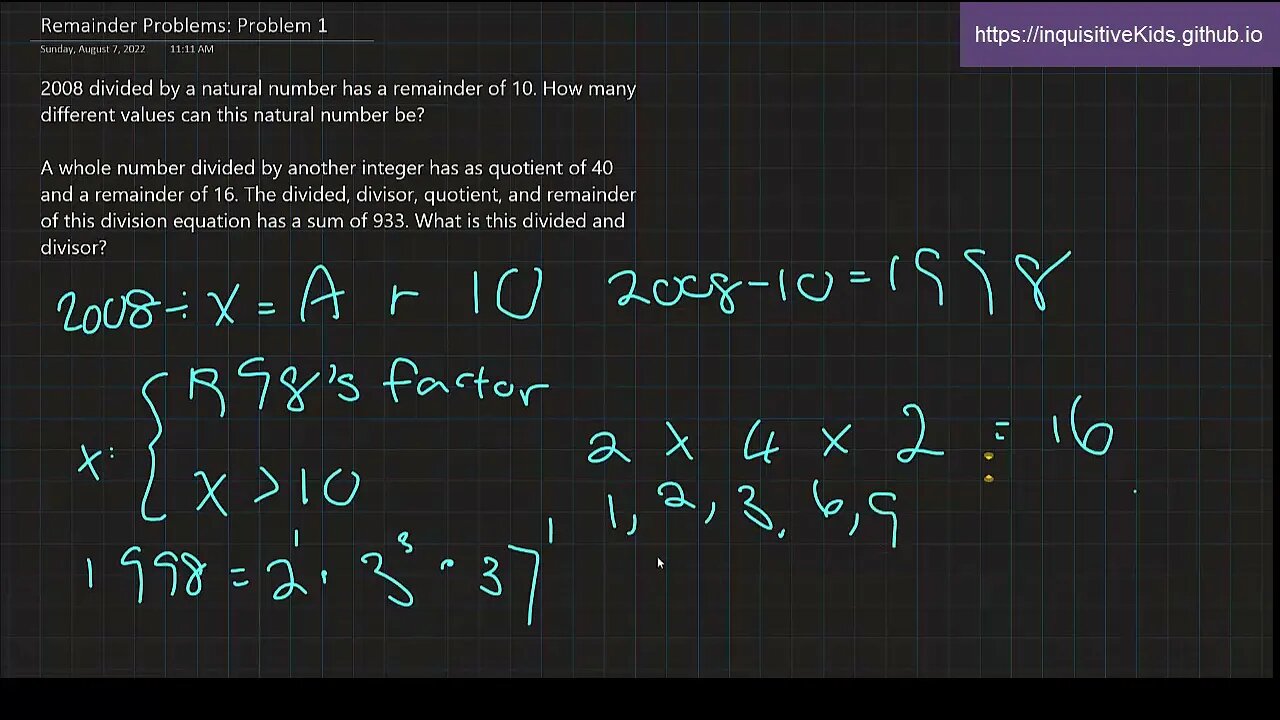 Remainder Problems: Problem 1
https://inquisitiveKids.github.io
Sunday, August 7, 2022 11:11 AM
2008 divided by a natural number has a remainder of 10. How many
different values can this natural number be?
A whole number divided by another integer has as quotient of 40
and a remainder of 16. The divided, divisor, quotient, and remainder
of this division equation has a sum of 933. What is this divided and
divisor?
2008 ÷ X = A r 10
2008-10=1998
X: { 1998's factor
X > 10
2 x 4 x 2 = 16
1, 2, 3, 6, 9
1998 = 2¹ · 3³ · 37¹